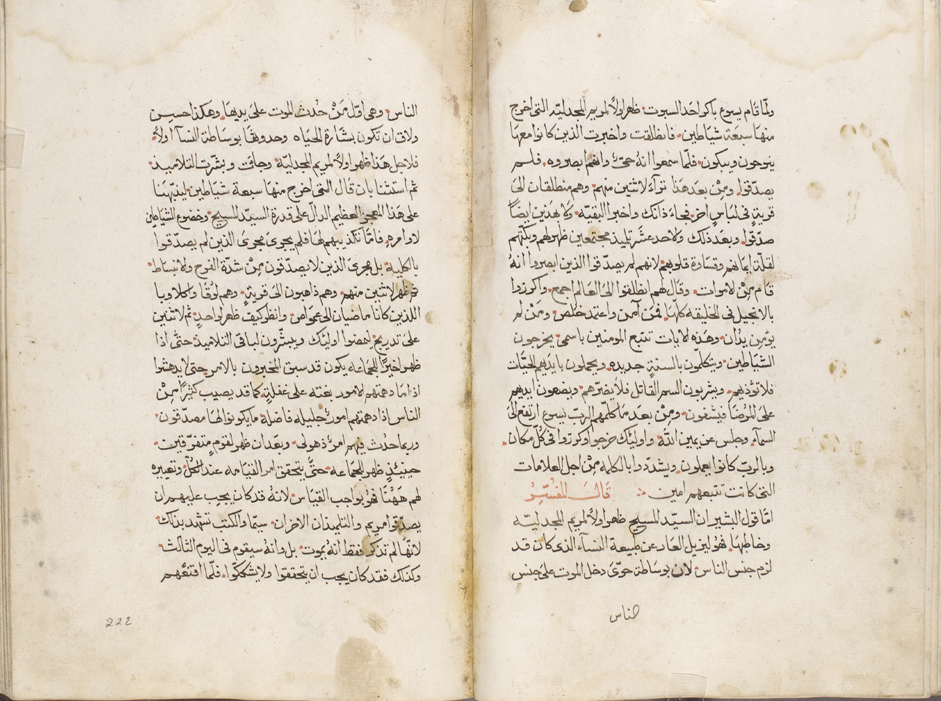 ولما قام يسوع باكر احد السبوت ظهر اولاً لمريم المجدليه التى اخرج
منها سبعة شياطين فانطلقت واخبرت الذين كانوا معها
ينوحون ويبكون فلما سمعوا انه حى وانهم ابصروه فلم
يصدقوا ومن بعد هذا تراءَ لاثنين منهم وهم منطلقان الى
قرية فى لباس اخر فجاءَ ذانك واخبرا البقيه ولا هذين ايضاً
صدقوا وبعد ذلك ولاحد عشر تلميذ مجتمعين ظهر لهم وبكتهم
لقلة ايمانهم وقساوة قلوبهم لانهم لم يصدقوا الذين ابصروا انه
قام من لاموات وقال لهم انطلقوا الى العالم اجمع واكرزوا
بالانجيل فى الخليقه كلها فمن آمن واعتمد خلص ومن لم
يومن يدان وهذه لايات تتبع المومنين باسمى يخرجون
الشياطين ويتكلمون بالسنة جديده ويحملون بايديهم الحيات
فلا توذيهم ويشربون السم القاتل فلا يضرهم ويضعون ايديهم
على المرضا فيشفون ومن بعد ما كلمهم الرب يسوع ارتفع الى
السمآ وجلس عن يمين الله واوليك خرجوا وكرزوا فى كل مكان
وبالرب كانوا يعملون ويشددوا بالكلمه من اجل العلامات
التى كانت تتبعهم امين قال المفسر
امّا قول البشير ان السيّد المسيح ظهر اولاً لمريم المجدليّه
وخاطبها فهو ليزيل العار عن طبيعة النسآء الذى كان قد
لزم جنس الناس لان بوساطة حوّى دخل الموت على جنس
الناس
الناس وهى اوّل من حُدث الموت على يدها وهكذا حسن
ولاق ان تكون بشارة الحياه وحدوثها بوساطة النسآ اولاً
فلاجل هذا ظهر اولاً لمريم المجدليّة وجات وبشّرت التلاميذ
ثم استثنا بان قال التى اخرج منها سبعة شياطين لينبّهنا
على هذا المعجز العظيم الدالّ على قدرة السيّد المسيح وخضوع الشياطين
لاوامره فامّا تكذيبهم لها فلم يجرى مجرى الذين لم يصدّقوا
بالكلية بل مجرى الذين لا يصدّقون من شدّة الفرح ولانبساط
ثم ظهر لاثنين منهم وهم ذاهبون الى قرية وهم لوقا واكلاوبا
اللذين كانا ماضيان الى عمواص وانظر كيف ظهر لواحد ثم لاثنين
على تدريج ليمضوا اوليك ويبشّرون لباقى التلاميذ حتى اذا
ظهر اخيرًا للجماعه يكون قد سبق المخبرون بالامر حتى لا يدهشوا
اذا ما دهمتهم لامور بغتة على غفلة كما قد يصيب كثيرًا من
الناس اذا دهمتهم امور جليله فاضلة ما يكونوا لها مصدّقون
وربما حدث فيهم امر ذهولى وبعد ان ظهر لقوم متفرّقين
حينيذٍ ظهر للجماعه حتى يتحقق امر القيامه عند الكلّ وتعييره
لهم ههنا فهو بواجب القياس لانه قد كان يجب عليهم ان
يصدّقوا مريم والتلميذان الاخران سيّما والكتب تشهد بذلك
لانها لم تذكر فقط انه يموت بل وانه سيقوم فى اليوم الثالث
وكذلك فقد كان يجب ان يتحققوا ولا يشكّوا فلمّا اقنعهم
222